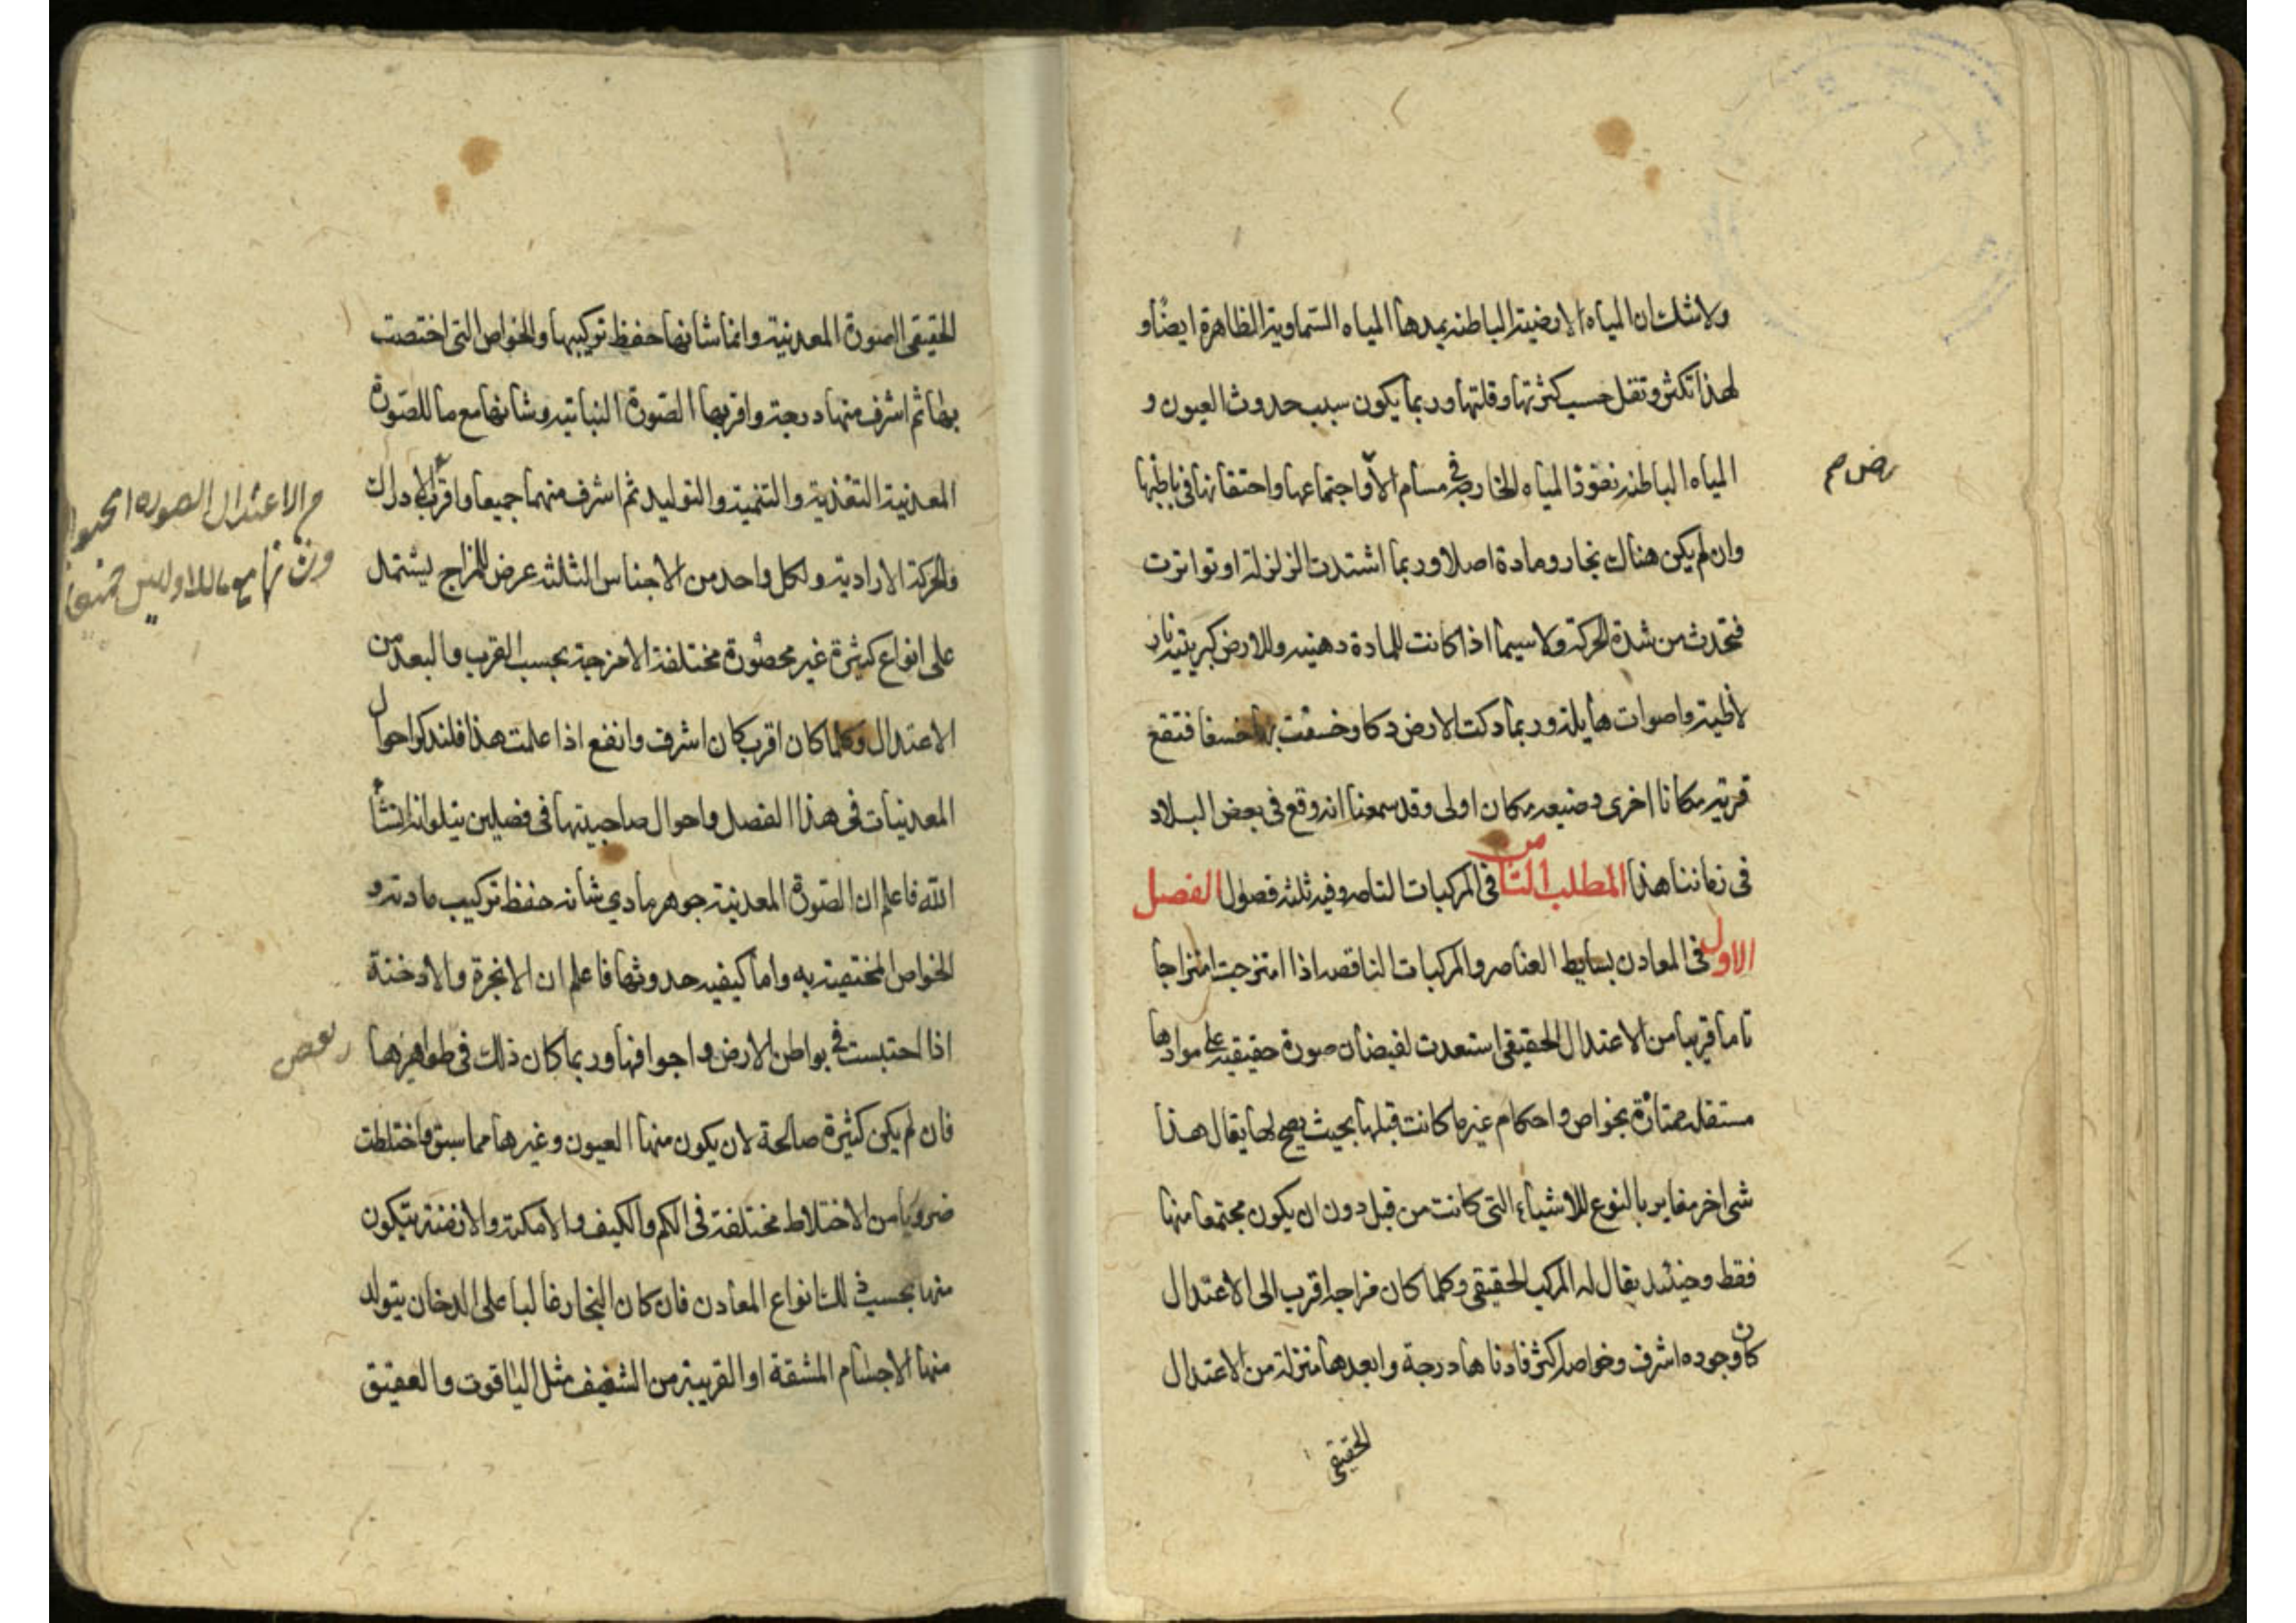 ولا شك ان المياه الارضية الباطنه يمدها المياه السماوية الظاهرة ايضاً و
لهذا تكثر وتقل حسب كثرتها وقلتها وربما يكون سبب حدوث العيون و
المياه الباطنه نفوذ المياه الخارجة في مسام الأ واجتماعها واحتقانها في باطنها
رض صح
وان لم يكن هناك بخار ومادة اصلا وربما اشتدت الزلزلة او تواترت
فتحدث من شدة الحركة ولا سيما اذا كانت للمادة دهنيه وللارض كبريتية نار
واصوات هايلة وربما دكت الارض دكا وخسفت بها خسفا فتقع
قرية مكانا اخرى وضيعه مكان اولى وقد سمعنا انه وقع في بعض البلاد
في زماننا هذا المطلب الثامن في المركبات التامه وفيه ثلثه فصول الفصل
الاول في المعادن بسايط العناصر والمركبات الناقصه اذا امتزجت امتزاجا
تاما قريبا من الاعتدال الحقيقي استعدت لفيضان صورة حقيقيه على موادها
مستقله ممتازة بخواص واحكام غير ما كانت قبلها بحيث يصح لها يقال هذا
شي اخر مغاير بالنوع للاشياء التي كانت من قبل دون ان يكون مجتمعا منها
فقط وحينئذ يقال له المركب الحقيقي وكلما كان مزاجه اقرب الى الاعتدال
كان وجوده اشرف وخواصه اكثر فادناها درجة وابعدها منزلة من الاعتدال
الحقيقي
الحقيقي الصورة المعدنية وانما شانها حفظ تركيبها والخواص التي اختصت
بها ثم اشرف منها درجة واقربها الصورة النباتيه وشانها مع ما للصورة
المعدنية التغذية والتنمية والتوليد ثم اشرف منهما جميعا واقرب الادراك
م الاعتدال الصوره الحيوا
وشانها مع ما للاوليين
والحركة الارادية ولكل واحد من الاجناس الثلثه عرض المزاج يشتمل
على انواع كثيرة غير محصورة مختلفة الامزجة بحسب القرب والبعد من
الاعتدال وكلما كان اقرب كان اشرف وانفع اذا علمت هذا فلنذكر احوال
المعدنيات في هذا الفصل واحوال صاحبيتها في فصلين يتلوانه انشأ
الله فاعلم ان الصورة المعدنية جوهر مادي شانه حفظ تركيب مادته و
الخواص المختصة به واما كيفيه حدوثها فاعلم ان الابخرة والادخنة
اذا احتبست في بواطن الارض واجوافها وربما كان ذلك في ظواهرها
فان لم يكن كثيرة صالحة لان يكون منها العيون وغيرها مما سبق واختلطت
ضروبا من الاختلاط مختلفة في الكم والكيف والامكنة والازمنة يتكون
منها بحسب ذلك انواع المعادن فان كان البخار غالبا على الدخان يتولد
منها الاجسام المشفة او القريبة من الشفيف مثل الياقوت والعقيق